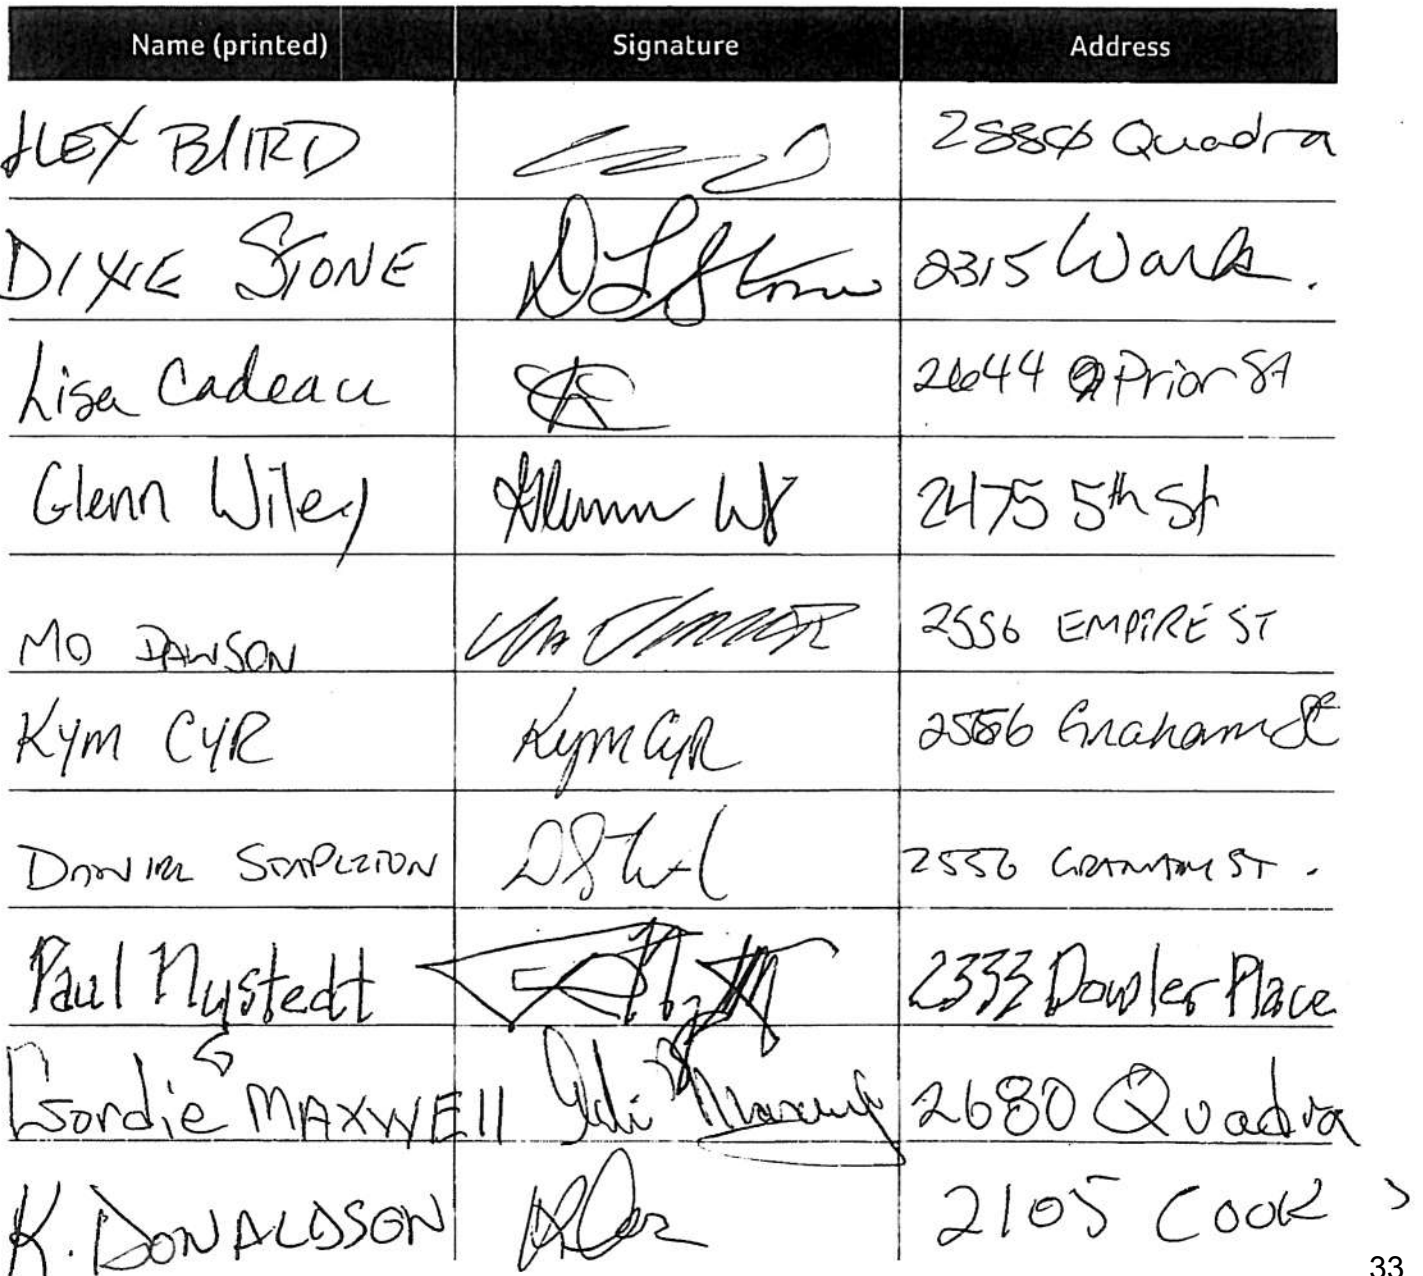 Name (printed) Signature Address
ALEX BAIRD 2880 Quadra
DIXIE STONE DLStone 2315 Wark.
Lisa Cadeau 2644 Prior St
Glenn Wiley Glenn W 2475 5th St
MO DAWSON 2556 EMPIRE ST
KYM CYR Kym Cyr 2556 Graham St
DANIEL STAPLETON 2556 GRAHAM ST.
Paul Nystedt 2333 Dowler Place
Gordie MAXWEll 2680 Quadra
K. DONALDSON 2105 COOK
33